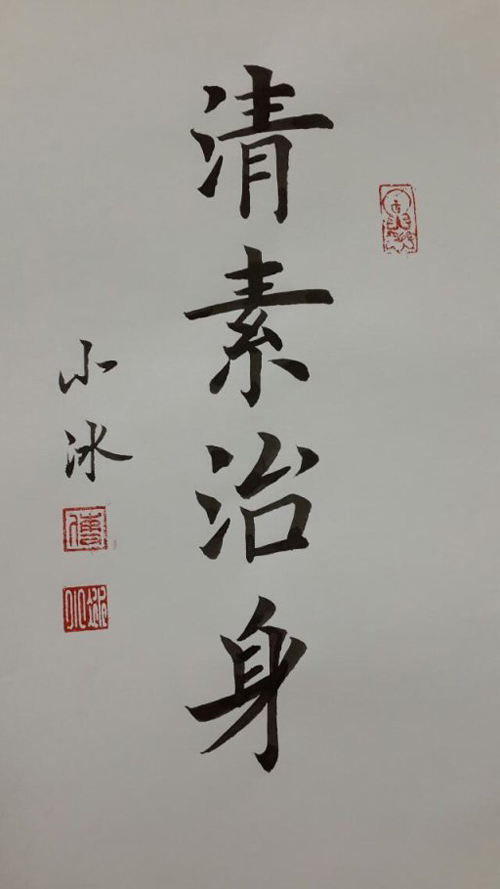 清素治身
小冰